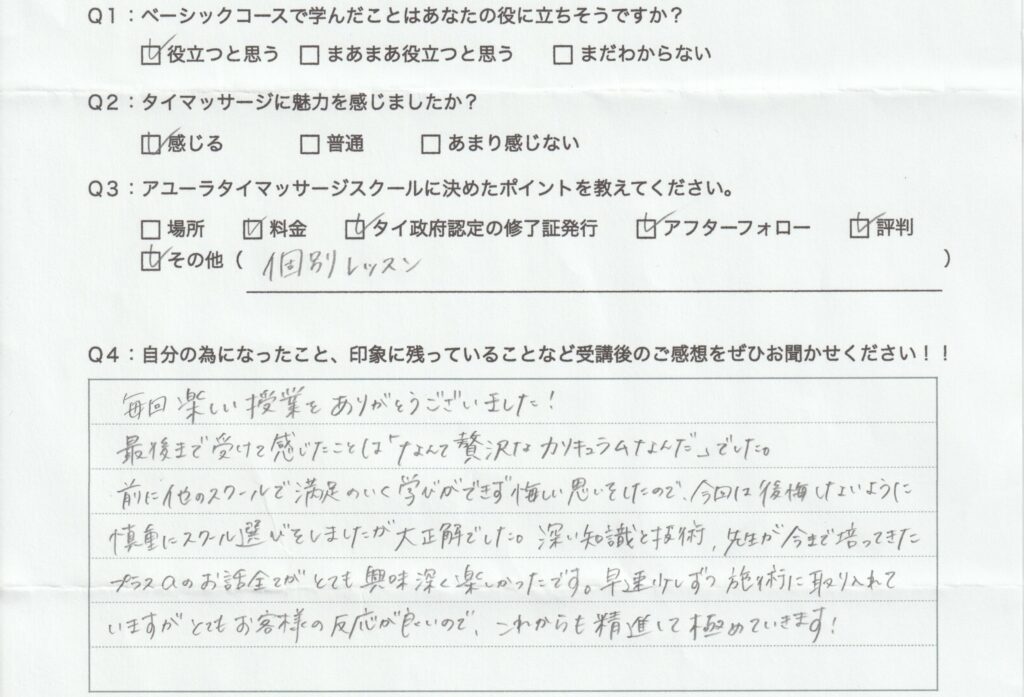 Q1：ベーシックコースで学んだことはあなたの役に立ちそうですか？
☑役立つと思う □まあまあ役立つと思う □まだわからない
Q2：タイマッサージに魅力を感じましたか？
☑感じる □普通 □あまり感じない
Q3：アユーラタイマッサージスクールに決めたポイントを教えてください。
□場所 ☑料金 ☑タイ政府認定の修了証発行 ☑アフターフォロー ☑評判
☑その他（ 個別レッスン ）
Q4：自分の為になったこと、印象に残っていることなど受講後のご感想をぜひお聞かせください！！
毎回楽しい授業をありがとうございました！
最後まで受けて感じたことは「なんて贅沢なカリキュラムなんだ」でした。
前に他のスクールで満足のいく学びができず悔しい思いをしたので、今回は後悔しないように
慎重にスクール選びをしましたが大正解でした。深い知識と技術、先生が今まで培ってきた
プラスαのお話全てがとても興味深く楽しかったです。早速少しずつ施術に取り入れて
いますがとてもお客様の反応が良いので、これからも精進して極めていきます！